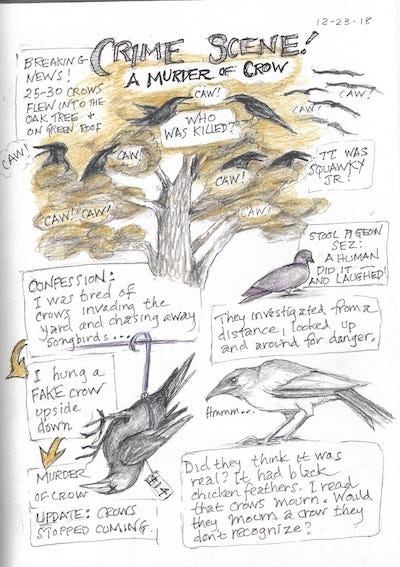 12-23-18
CRIME SCENE!
A MURDER OF CROW
BREAKING
NEWS!
25-30 CROWS
FLEW INTO THE
OAK TREE +
ON GREEN ROOF
CAW!
CAW!
CAW!
CAW!
WHO
WAS KILLED?
CAW!
CAW!
CAW!
CAW!
IT WAS
SQUAWKY
JR!
CAW! CAW!
CAW!
STOOL PIGEON
SEZ:
A HUMAN
DID IT —
AND LAUGHED!
CONFESSION:
I was tired of
crows invading the
yard and chasing away
songbirds...
They investigated from a
distance, looked up
and around for danger.
I hung a
FAKE crow
upside
down
Hmmm...
MURDER
OF CROW
$14
UPDATE: CROWS
STOPPED COMING.
Did they think it was
real? It had black
chicken feathers. I read
that crows mourn. Would
they mourn a crow they
don't recognize?